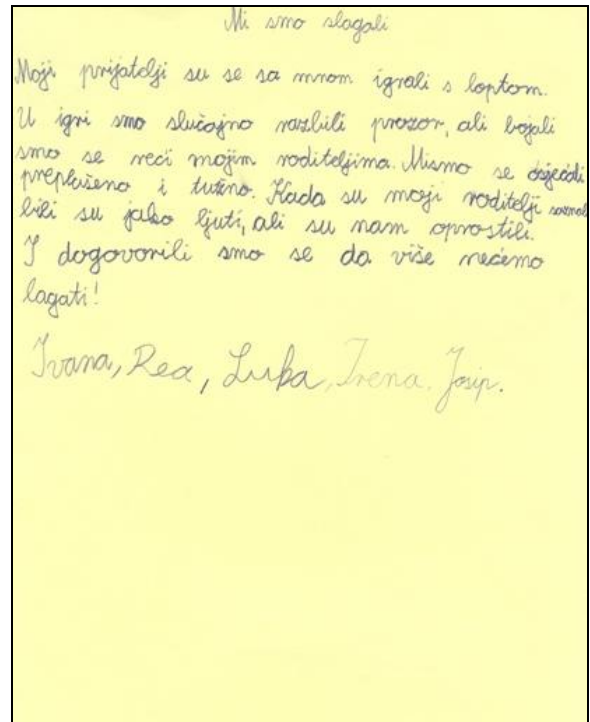 Mi smo slagali
Moji prijatelji su se sa mnom igrali s loptom.
U igri smo slučajno razbili prozor, ali bojali
smo se reći mojim roditeljima. Mismo se osjećali
preplašeno i tužno. Kada su moji roditelji saznali
bili su jako ljuti, ali su nam oprostili.
I dogovorili smo se da više nećemo
lagati!
Ivana, Rea, Luka, Irena, Josip.